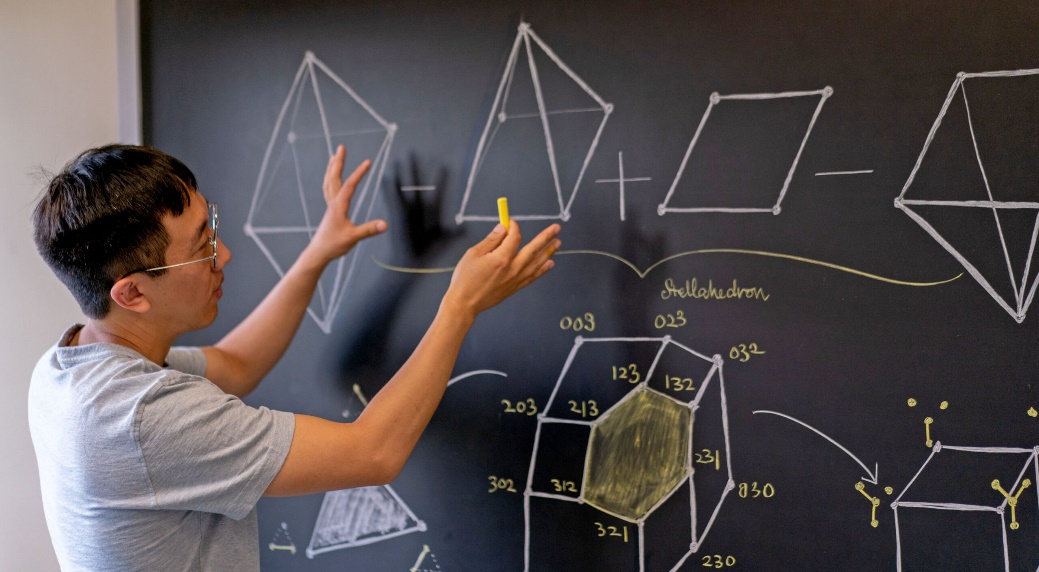 − + −
Stellahedron
003 023
032
123 132
203 213
231
302 312
030
321
230